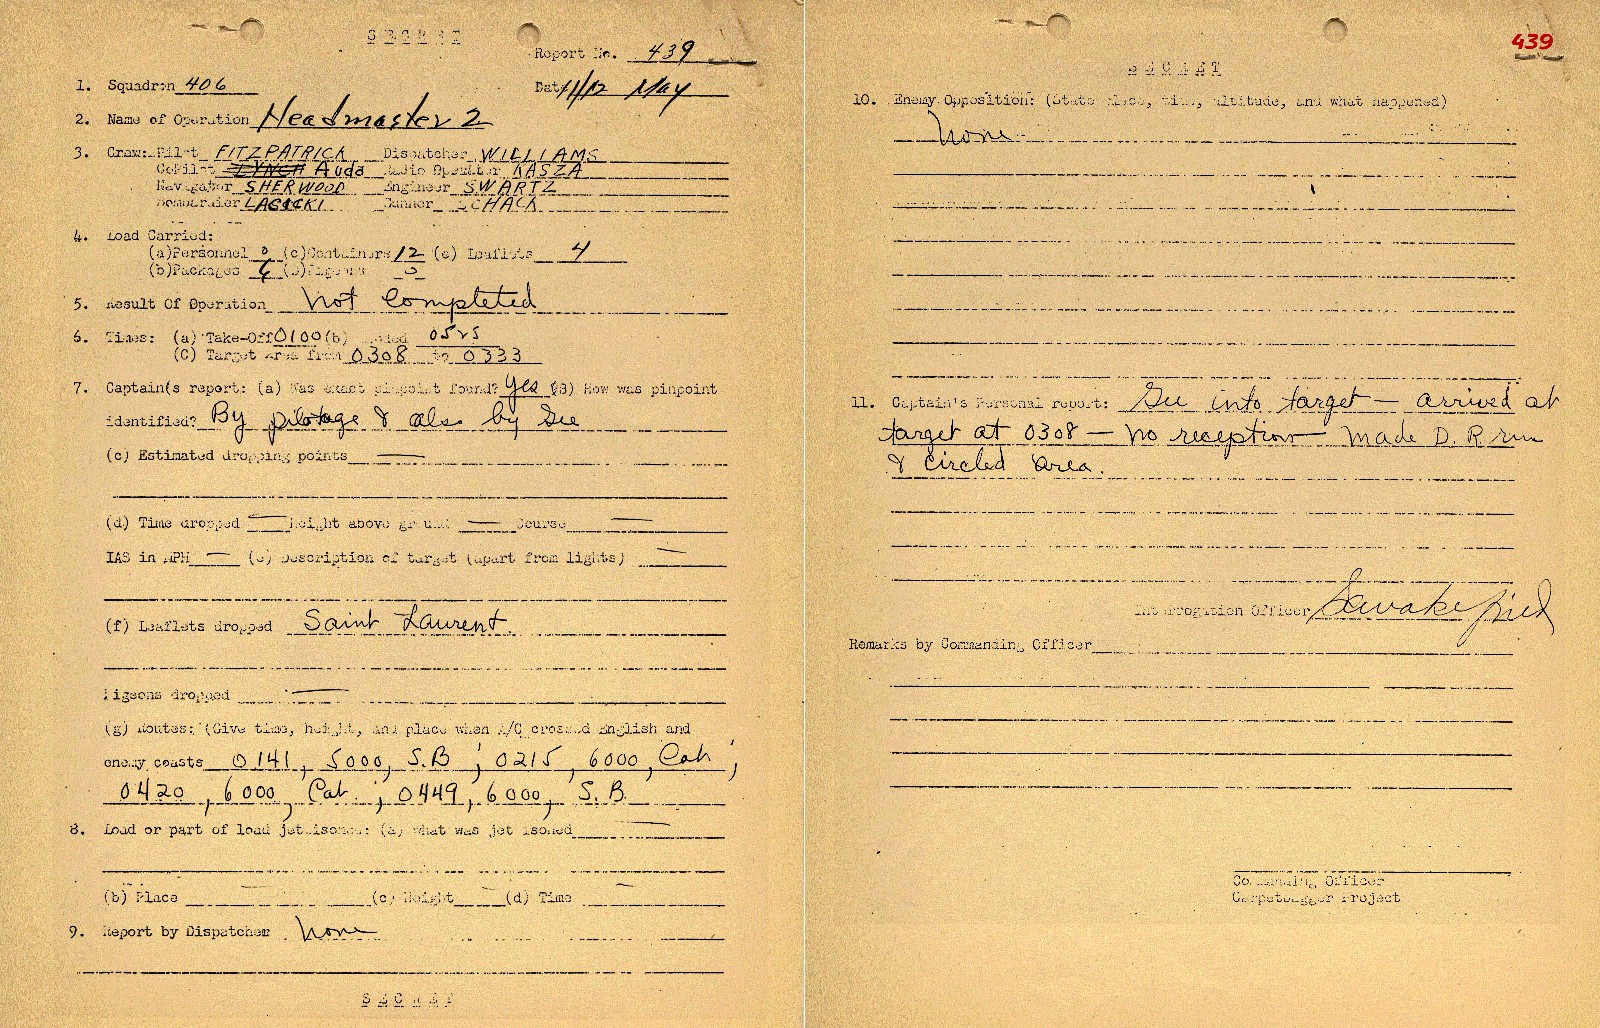 SECRET
Report No. 439
1. Squadron 406 Date 11/12 May
2. Name of Operation Headmaster 2
3. Crew: Pilot FITZPATRICK Dispatcher WILLIAMS
CoPilot LYNCH Auda Radio Operator KASZA
Navigator SHERWOOD Engineer SWARTZ
Bombardier LASICKI Gunner SCHACK
4. Load Carried:
(a)Personnel 0 (c)Containers 12 (e) Leaflets 4
(b)Packages 6 (d)Pigeons 0
5. Result Of Operation Not Completed
6. Times: (a) Take-Off 0100 (b) Landed 0525
(C) Target Area from 0308 to 0333
7. Captain(s report: (a) Was exact pinpoint found? Yes (B) How was pinpoint
identified? By pilotage & also by Gee
(c) Estimated dropping points —
(d) Time dropped — Height above ground — Course —
IAS in MPH — (e) Description of target (apart from lights) —
(f) Leaflets dropped Saint Laurent
Pigeons dropped —
(g) Routes: (Give time, height, and place when A/C crossed English and
enemy coasts 0141, 5000, S.B; 0215, 6000, Cab;
0420, 6000, Cab; 0449, 6000, S.B.
8. Load or part of load jettisoned: (a) what was jettisoned —
(b) Place — (c) Height — (d) Time —
9. Report by Dispatcher None
SECRET
439
SECRET
10. Enemy Opposition: (State place, time, altitude, and what happened)
None
11. Captain's Personal report: Gee into target — arrived at
target at 0308 — No reception — Made D.R run
& circled area.
Interrogation Officer
Remarks by Commanding Officer
Commanding Officer
Carpetbagger Project